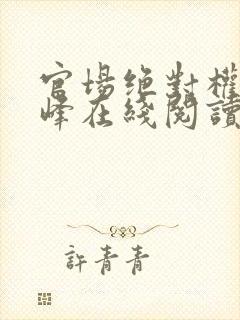 官場絶對權
峰在綫閱讀
許青青